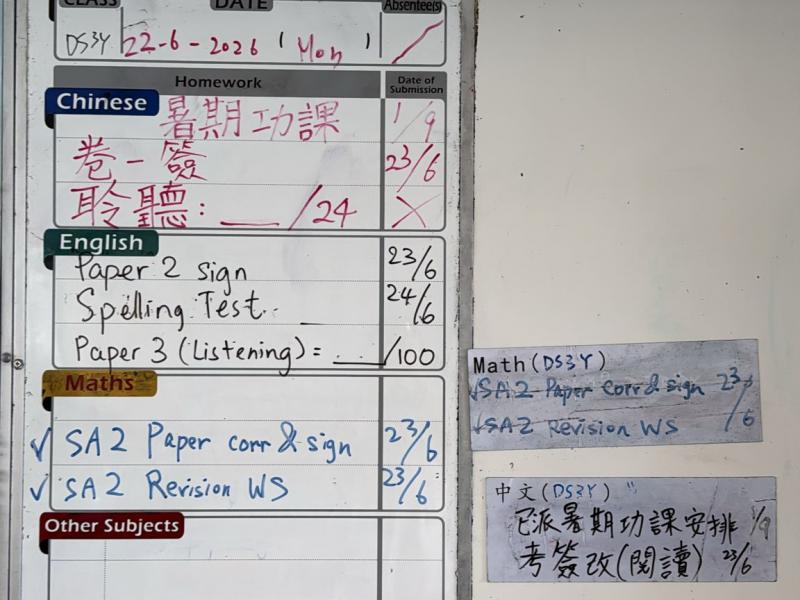 CLASS DATE Absentee(s)
DS3Y 22-6-2026 (Mon)
Homework Date of Submission
Chinese
暑期功課 1/9
卷一簽 23/6
聆聽: ___ /24 X
English
Paper 2 sign 23/6
Spelling Test 24/6
Paper 3 (Listening) = ___/100
Maths
✓ SA2 Paper corr & sign 23/6
✓ SA2 Revision WS 23/6
Other Subjects
Math (DS3Y)
✓SA2 Paper corr & sign 23/6
✓SA2 Revision WS
中文(DS3Y)
已派暑期功課安排 1/9
考簽改(閱讀) 23/6